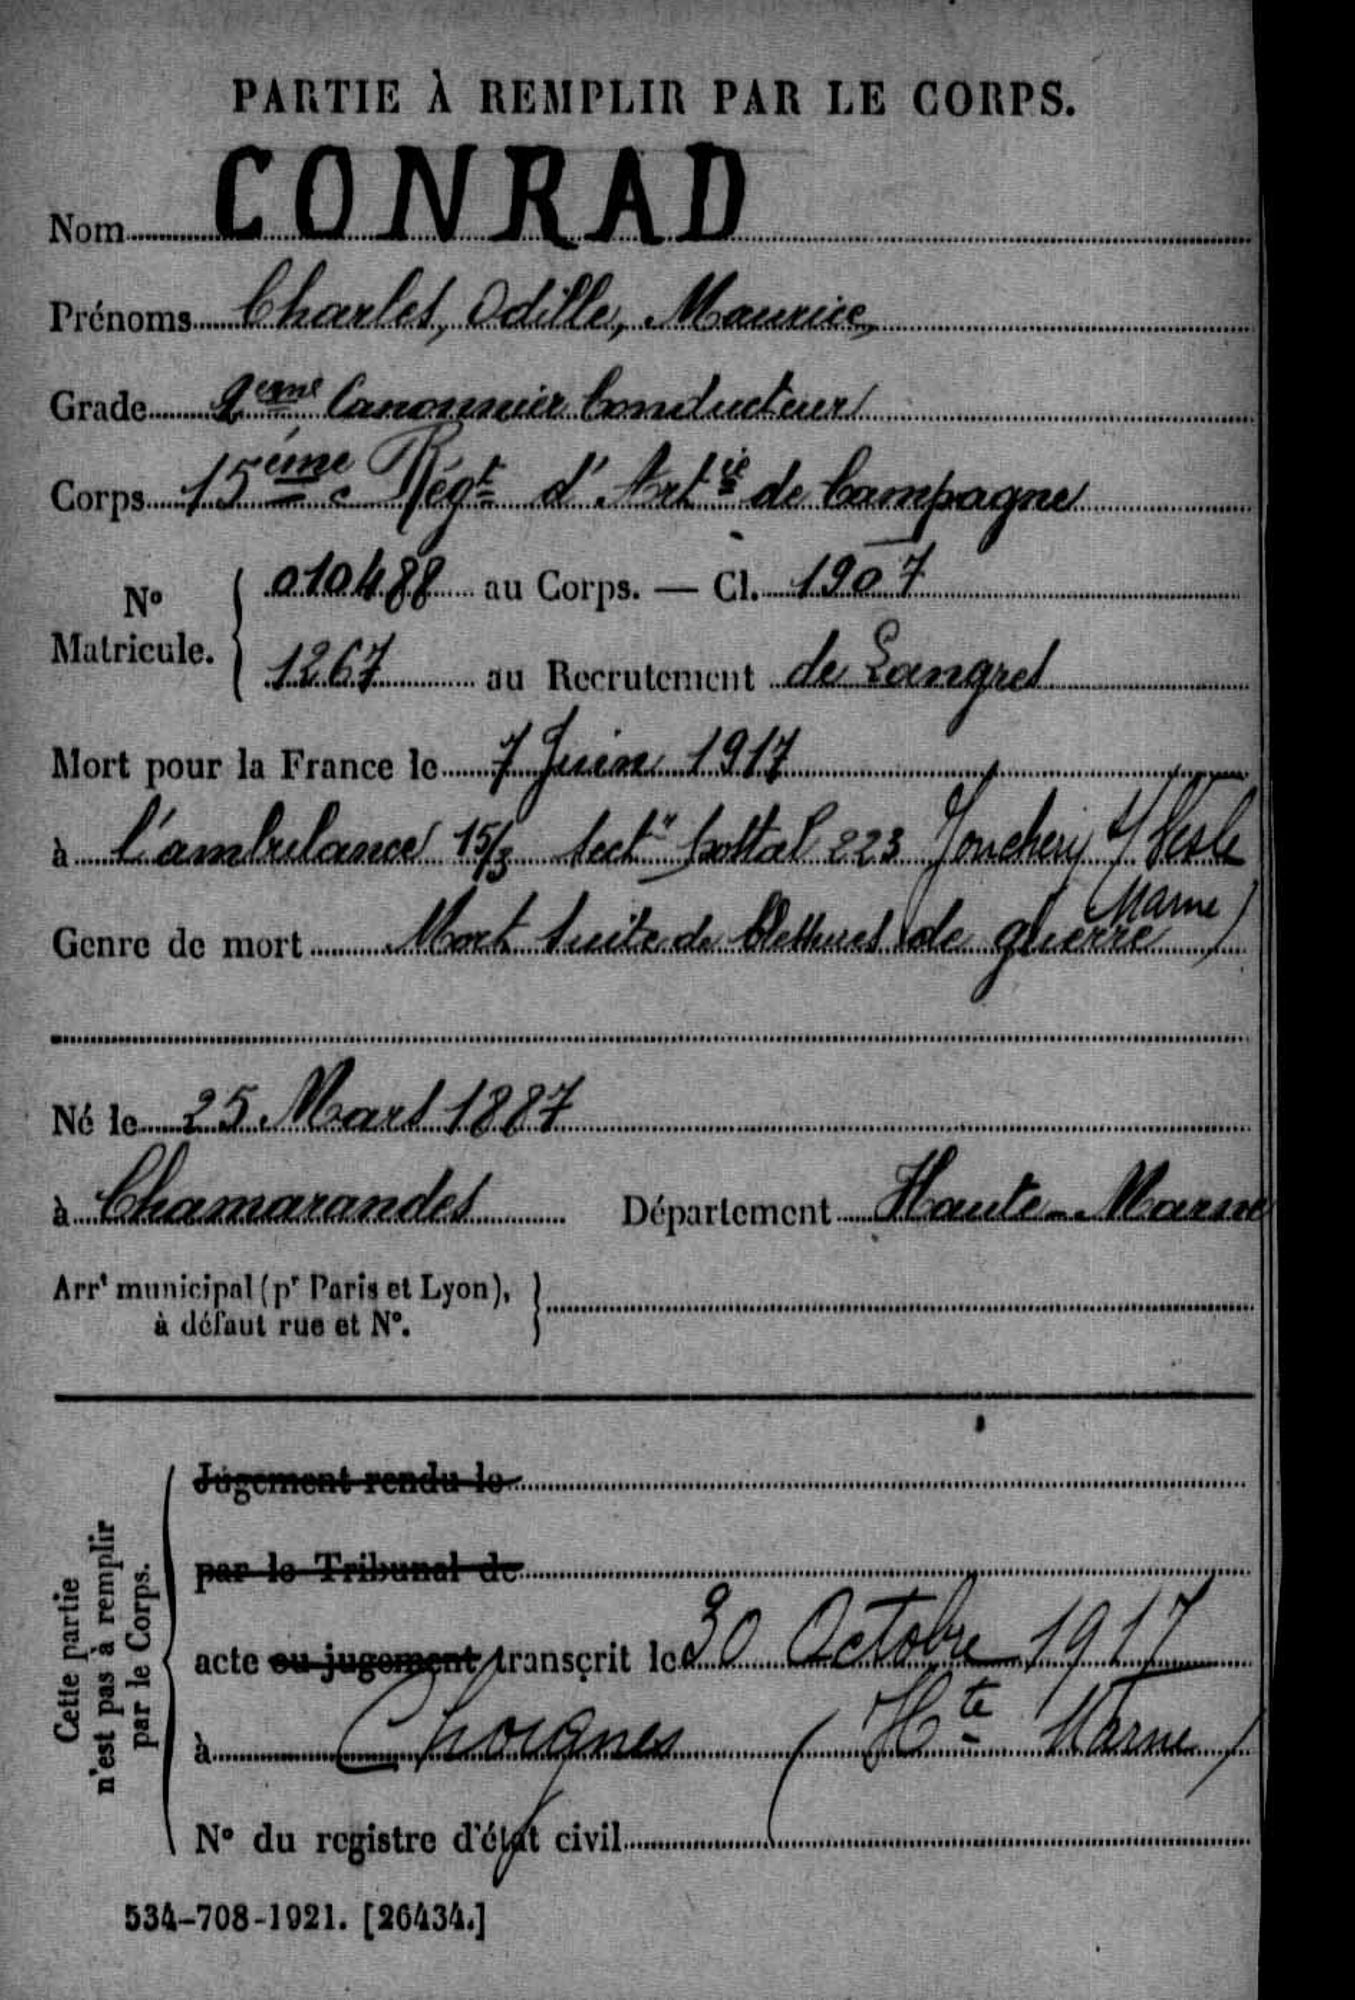 PARTIE À REMPLIR PAR LE CORPS.
Nom CONRAD
Prénoms Charles, Odille, Maurice,
Grade 2eme Canonnier Conducteur
Corps 15ème Régt d'Artie de Campagne
No Matricule. { 010488 au Corps. — Cl. 1907
1267 au Recrutement de Langres
Mort pour la France le 7 Juin 1917
à l'ambulance 15/3 sectn postal 223 Jonchery s/ Vesle
Marne)
Genre de mort Mort suite de blessures de guerre
Né le 25 Mars 1887
à Chamarandes Département Haute-Marne
Arrt municipal (pr Paris et Lyon),
à défaut rue et No.
Cette partie
n'est pas à remplir
par le Corps.
Jugement rendu le
par le Tribunal de
acte ou jugement transcrit le 30 Octobre 1917
à Choignes (Hte Marne)
No du registre d'état civil
534-708-1921. [26434.]